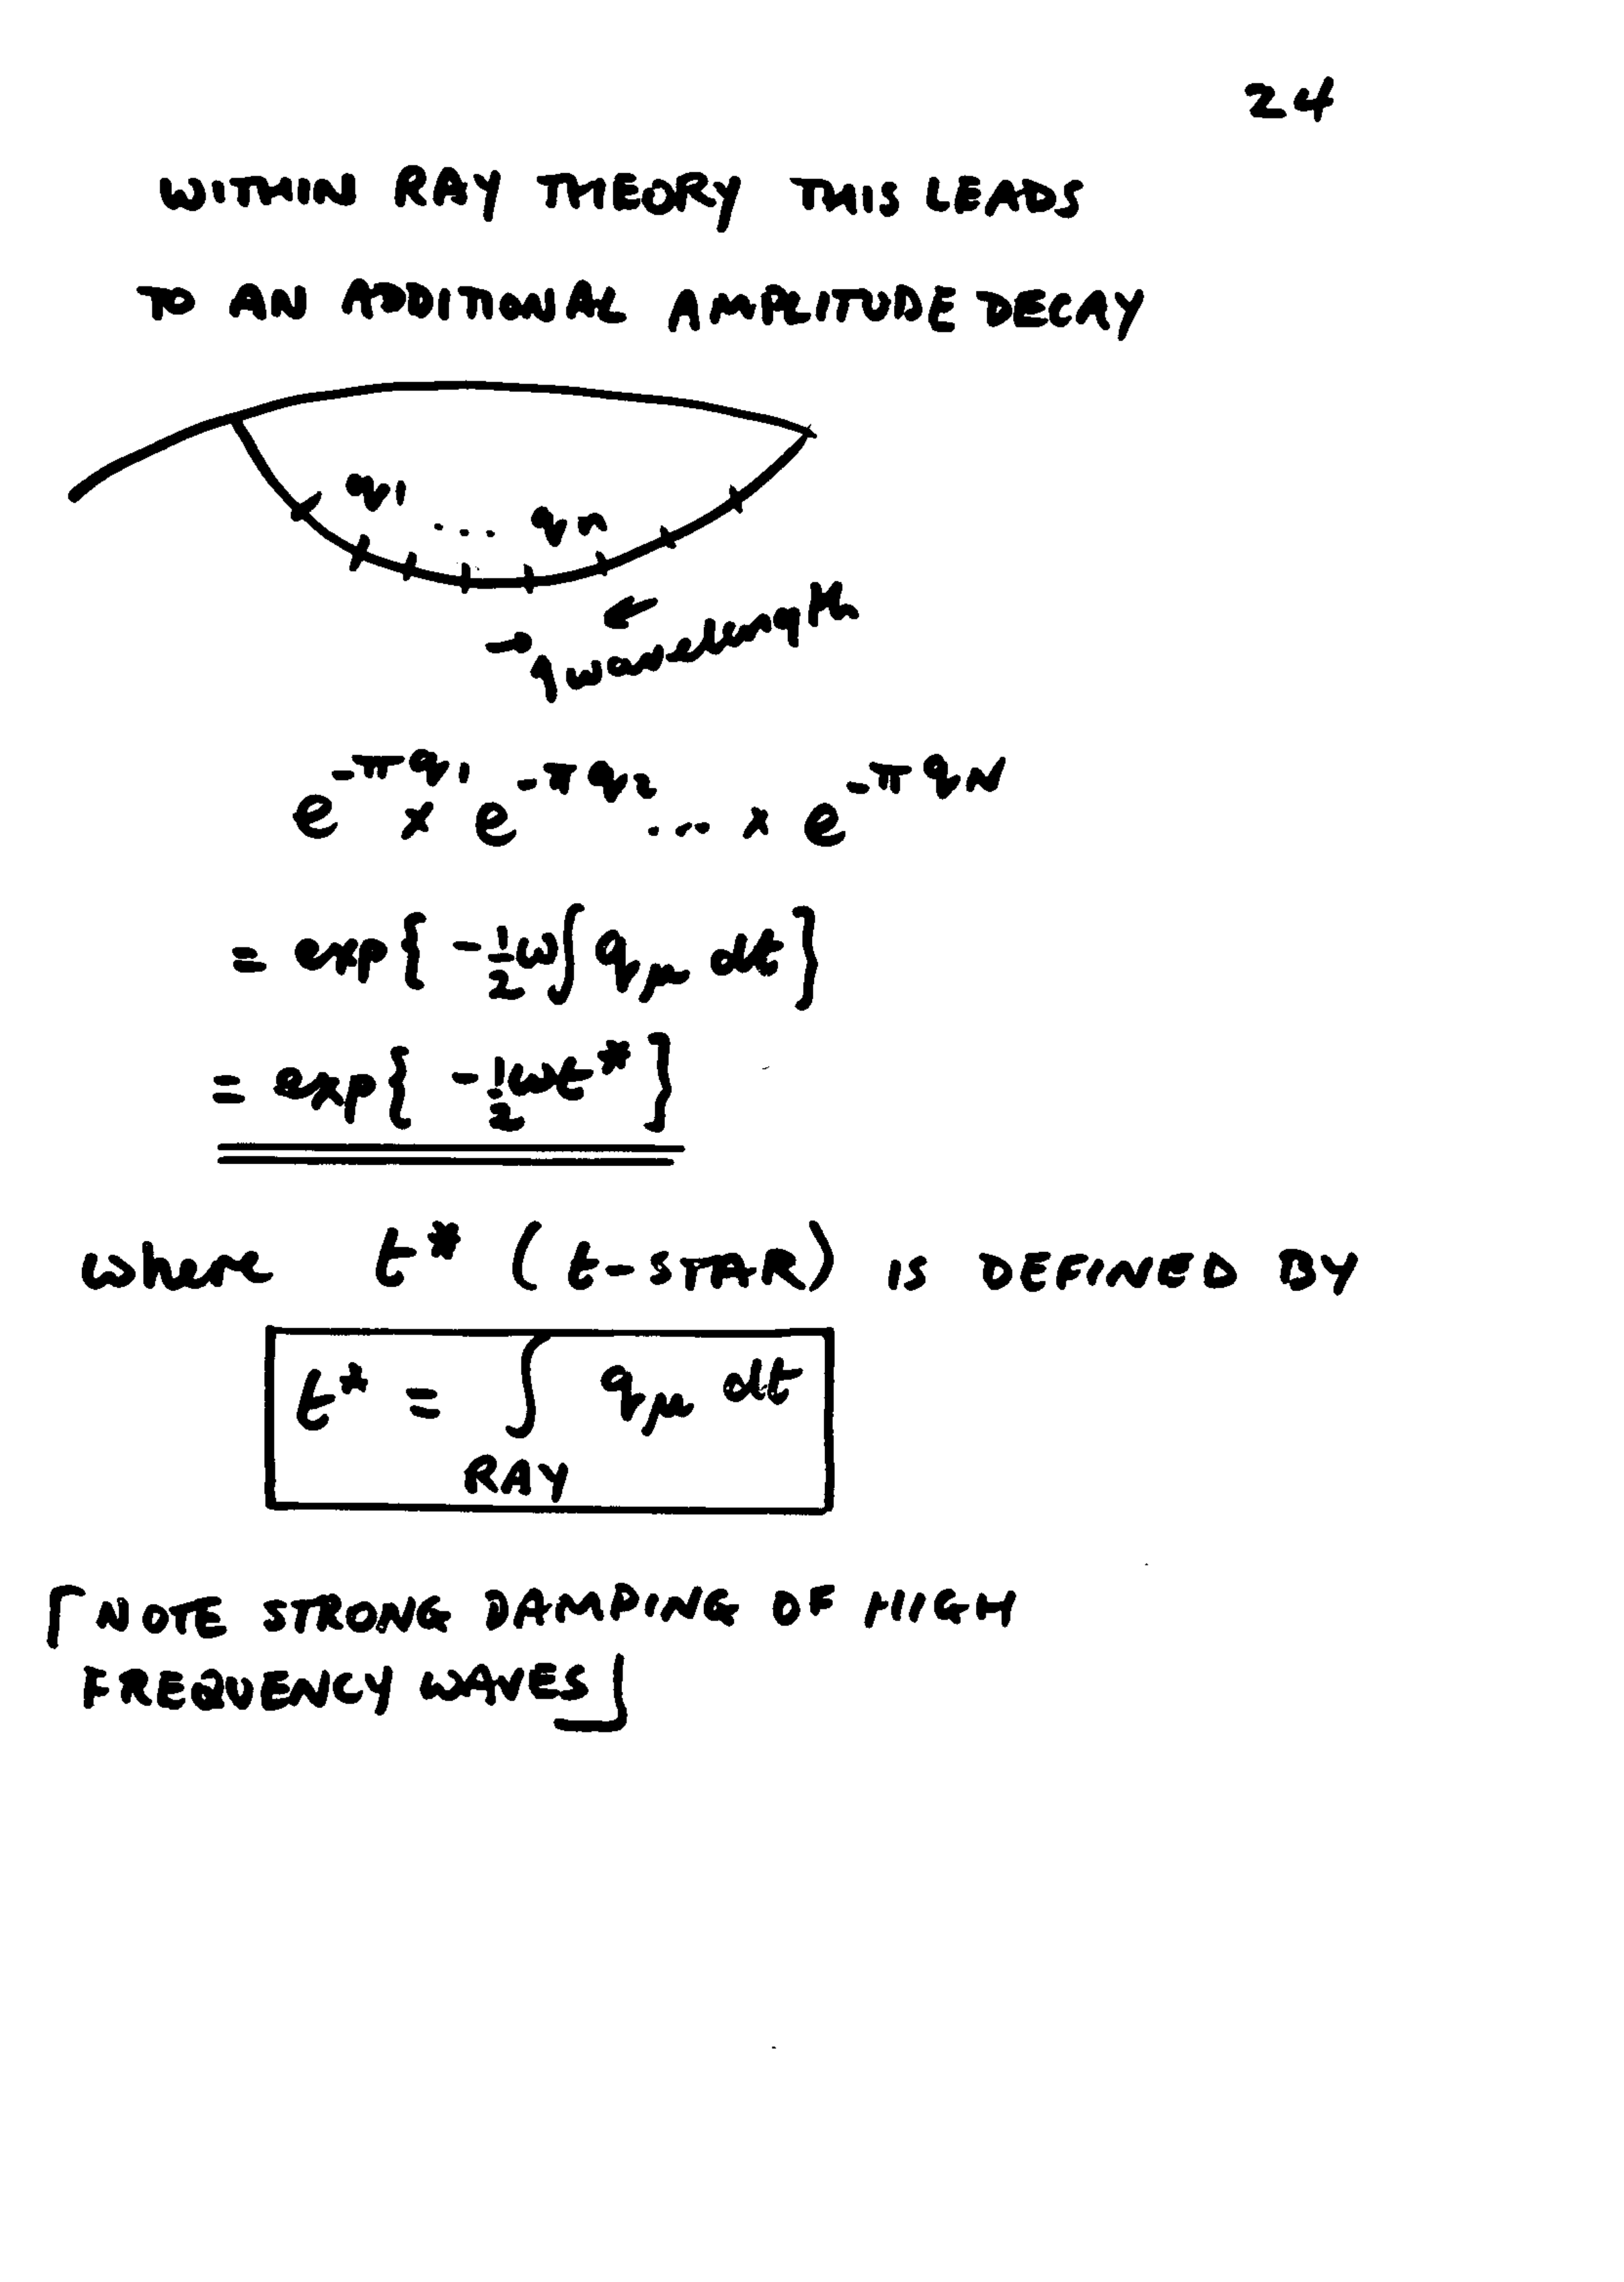 24
WITHIN RAY THEORY THIS LEADS
TO AN ADDITIONAL AMPLITUDE DECAY
q1 ... qn
→ 1 wavelength ←
e^{-πq1} × e^{-πq2} ... × e^{-πqN}
= exp{ -½ω∫ qμ dt }
= exp{ -½ωt* }
where t* (t-STAR) IS DEFINED BY
t* = ∫ qμ dt
RAY
⌈NOTE STRONG DAMPING OF HIGH
FREQUENCY WAVES⌋